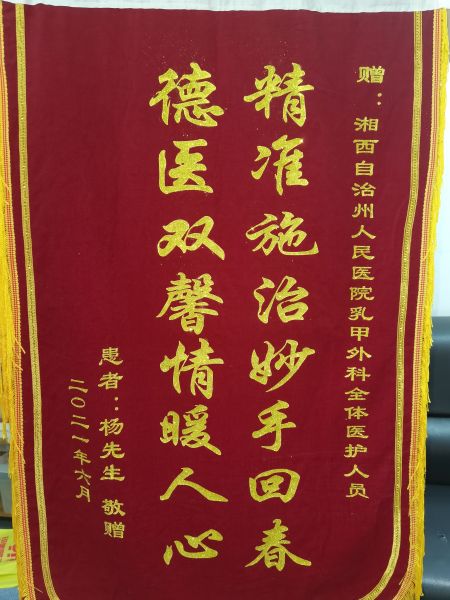 赠：湘西自治州人民医院乳甲外科全体医护人员
精准施治妙手回春
德医双馨情暖人心
患者：杨先生 敬赠
二〇二一年六月